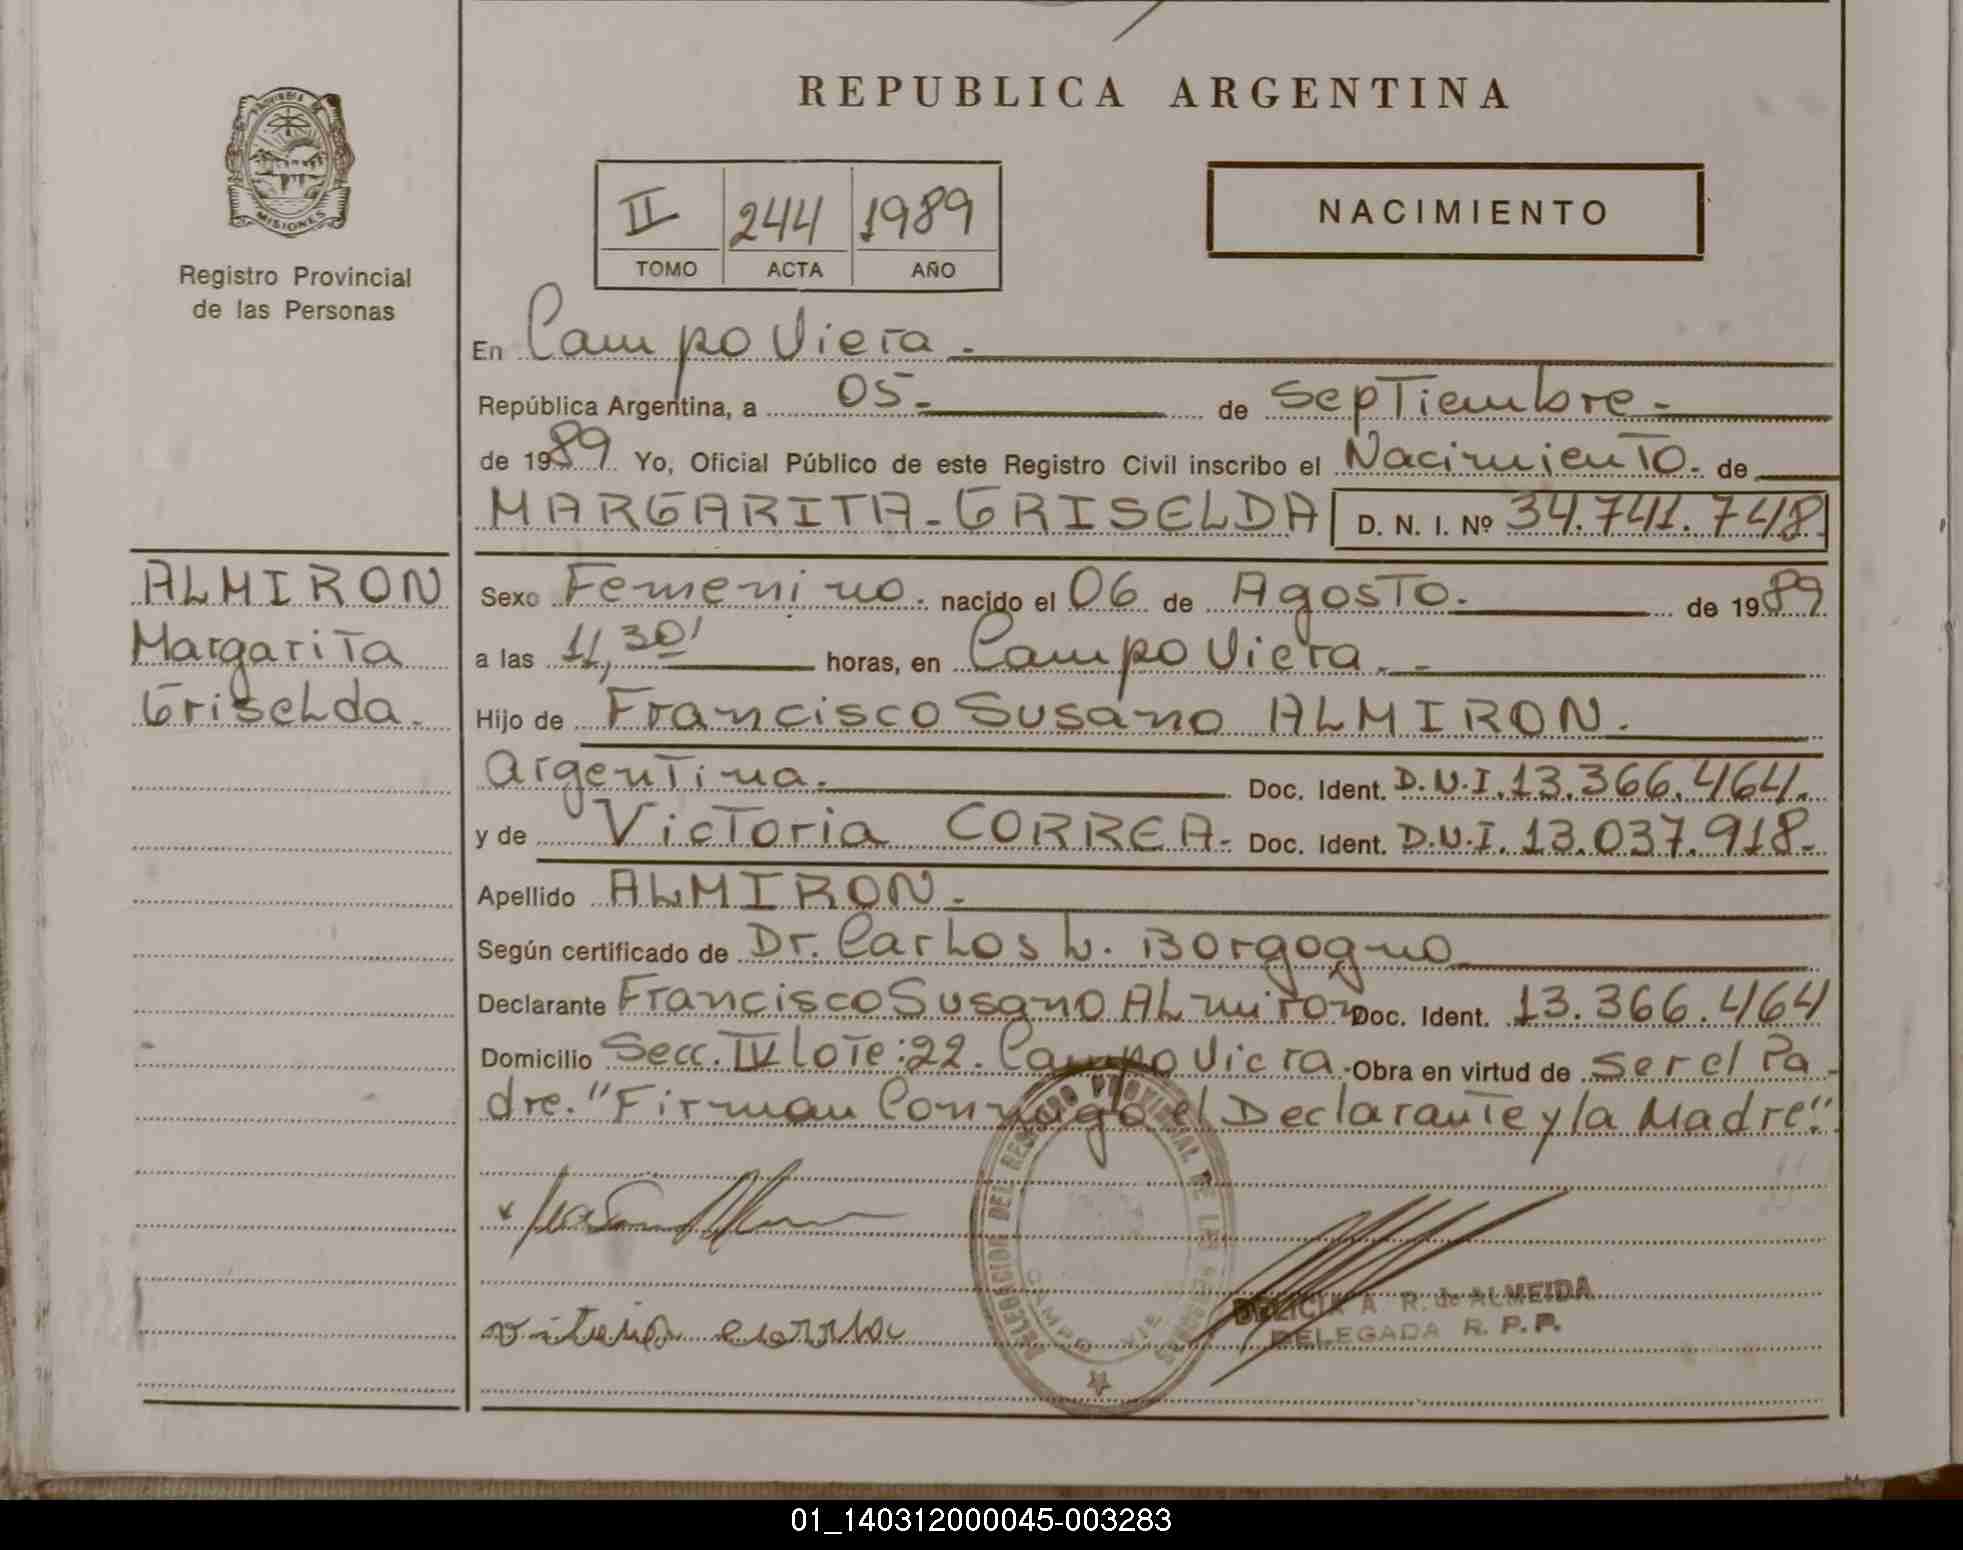 REPUBLICA ARGENTINA
PROVINCIA DE
MISIONES
Registro Provincial
de las Personas
II 244 1989
TOMO ACTA AÑO
NACIMIENTO
En Campo Viera.
República Argentina, a 05 de Septiembre.
de 1989 Yo, Oficial Público de este Registro Civil inscribo el Nacimiento. de
MARGARITA-GRISELDA D. N. I. Nº 34.741.748
ALMIRON
Margarita
Griselda.
Sexo Femenino. nacido el 06 de Agosto. de 1989
a las 11,30' horas, en Campo Viera.
Hijo de Francisco Susano ALMIRON.
Argentina. Doc. Ident. D.N.I. 13.366.464.
y de Victoria CORREA- Doc. Ident. D.N.I. 13.037.918-
Apellido ALMIRON.
Según certificado de Dr. Carlos L. Borgogno
Declarante Francisco Susano ALmiron Doc. Ident. 13.366.464
Domicilio Secc. IV Lote:22. Campo Viera. Obra en virtud de ser el Pa-
dre. "Firman Con el Declarante y la Madre".
DELEGACION DEL REGISTRO PROVINCIAL DE LAS PERSONAS
CAMPO VIERA
DELICIA A R. de ALMEIDA
DELEGADA R. P. P.
01_140312000045-003283